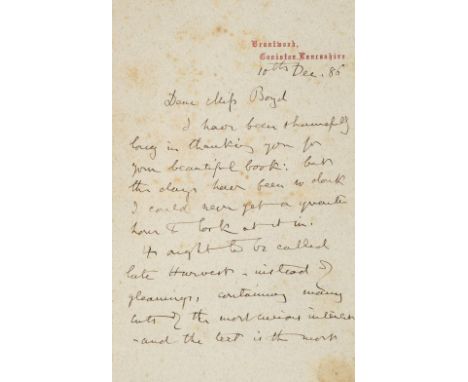 Brantwood,
Coniston, Lancashire
10th Dec. 85
Dear Miss Boyd
I have been shamefully
long in thanking you for
your beautiful book: but
the days have been so dark
I could never get a quarter
hour to look at it in.
It ought to be called
late Harvest - instead of
gleanings, containing many
cuts of the most curious interest
- and the text is the most